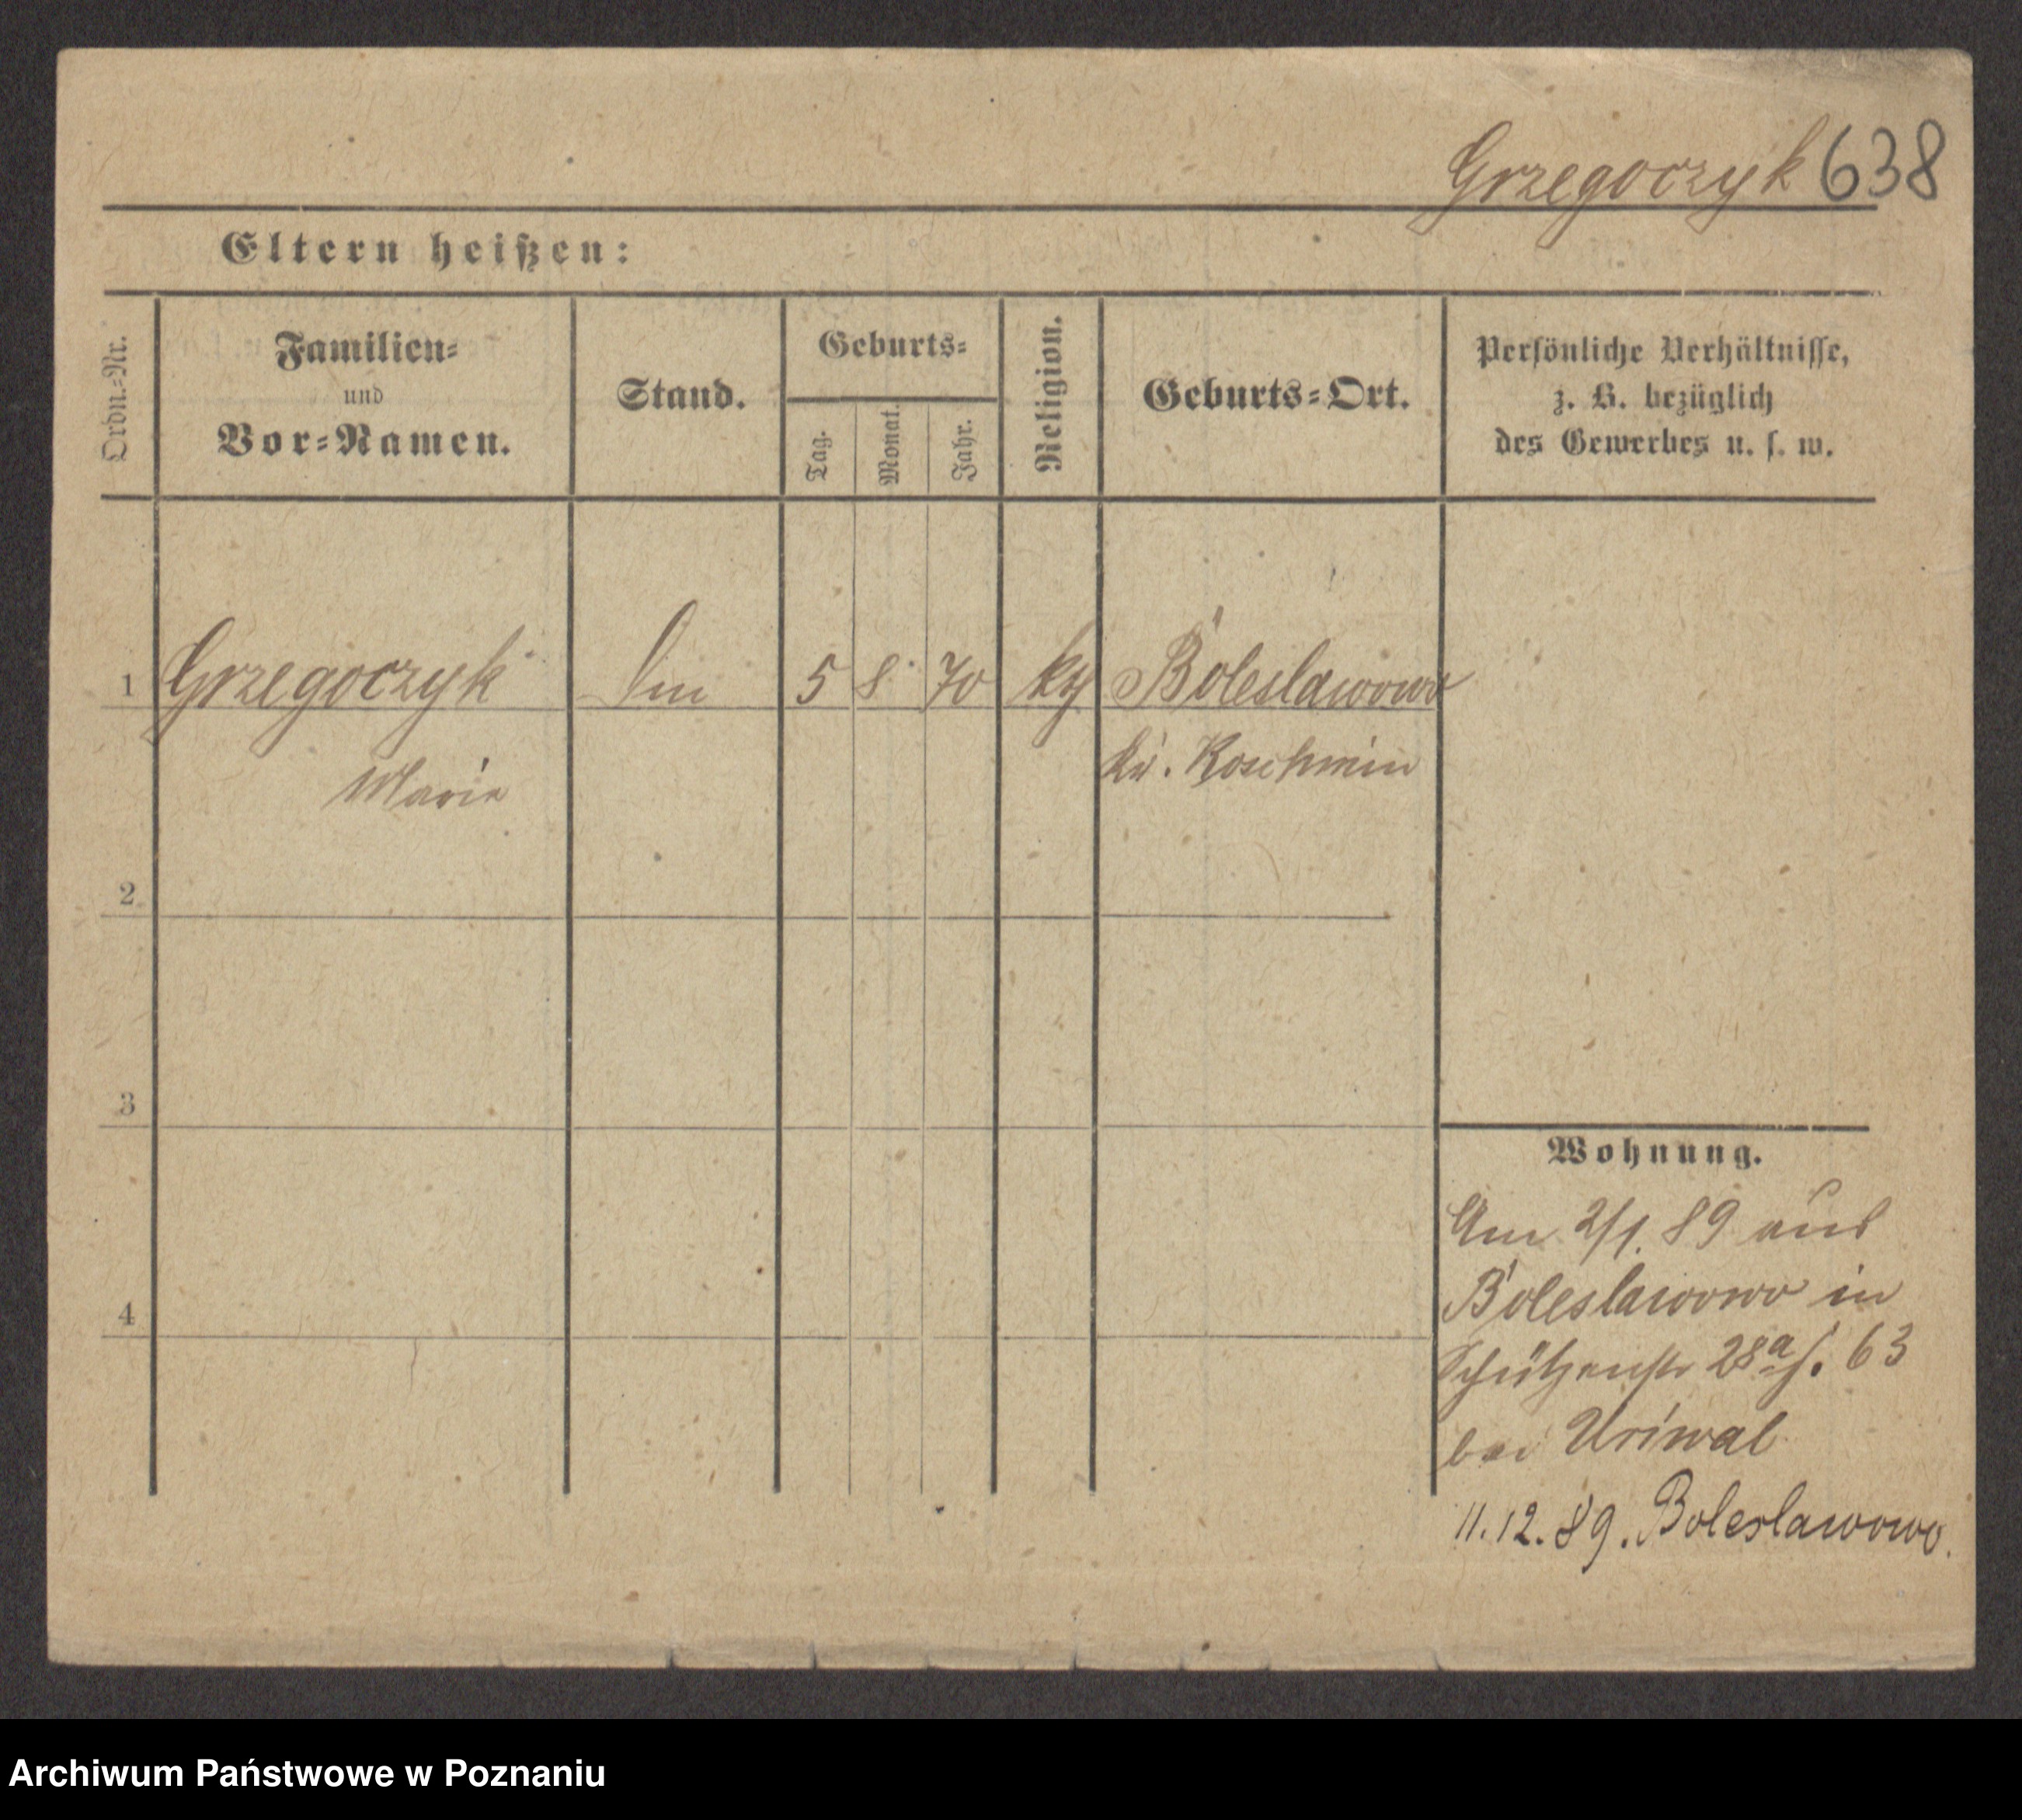 Grzegoczyk 638
Eltern heißen:
Ordn.=Nr.
Familien=
und
Vor=Namen.
Stand.
Geburts=
Tag.
Monat.
Jahr.
Religion.
Geburts=Ort.
Persönliche Verhältnisse,
z. B. bezüglich
des Gewerbes u. s. w.
1 Grzegoczyk 5 8 70 Boleslawowo
Marie Kr. Koschmin
2
3
4
Wohnung.
Am 2/1. 89 aus
Boleslawowo in
Schützenstr 28a 63
bei Uriwal
11.12.89. Boleslawowo.
Archiwum Państwowe w Poznaniu